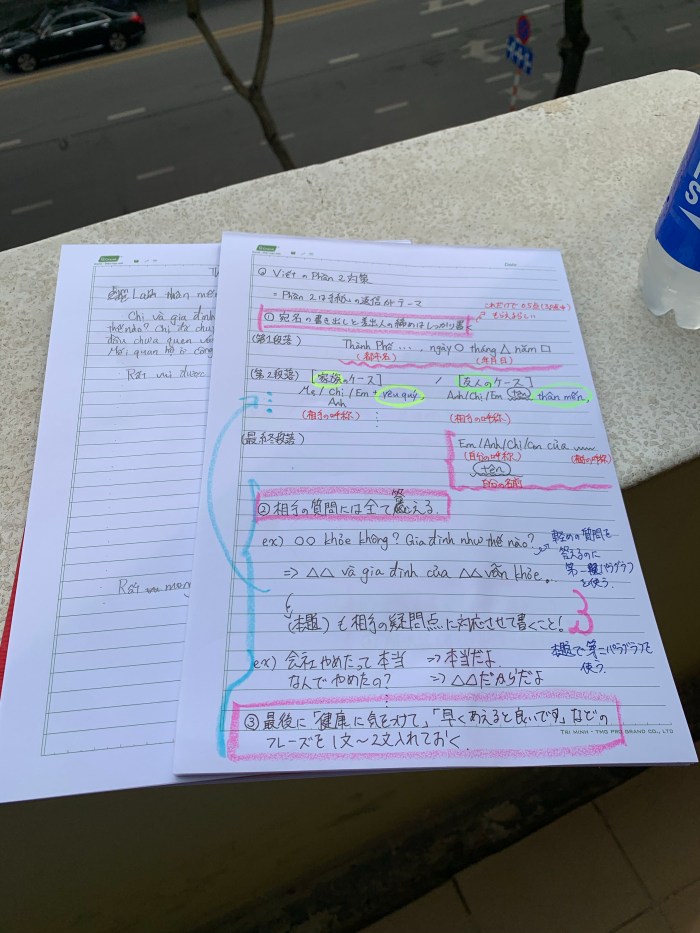 Date
Q Viết の Phần 2 対策
。Phần 2は手紙の返信がテーマ
これだけで
もらえるらしい
① 宛名の書き出しと差出人の締めはしっかり書く
(第1段落) Thành Phố ..., ngày ○ tháng △ năm □
(都市名) (年月日)
(第2段落) [家族のケース] / [友人のケース]
Mẹ / Chị / Em + yêu quý, Anh/Chị/Em (+名前) thân mến,
Anh
(相手の呼称) (相手の呼称)
(最終段落) Em/Anh/Chị/Con của
(自分の呼称) (相手の呼称)
(+名前)
自分の名前
② 相手の質問には全て答える.
ex) ○○ khỏe không? Gia đình như thế nào?
⇒ △△ và gia đình của △△ vẫn khỏe.
軽めの質問を
答えるのに
第一パラグラフ
を使う.
(本題)も相手の疑問点に対応させて書くこと!
本題で第二パラグラフを
使う.
ex) 会社やめたって本当 ⇒ 本当だよ
なんでやめたの? ⇒ △△だからだよ
③ 最後に「健康に気をつけて」,「早くあえると良いです」などの
フレーズを1文〜2文入れておく
TRI MINH - THO PRO BRAND CO., LTD
Lanh thân mến
Chị và gia đình
thế nào? Chị đã chuy
đầu chưa quen với
Mối quan hệ
Rất vui được
Rất mong